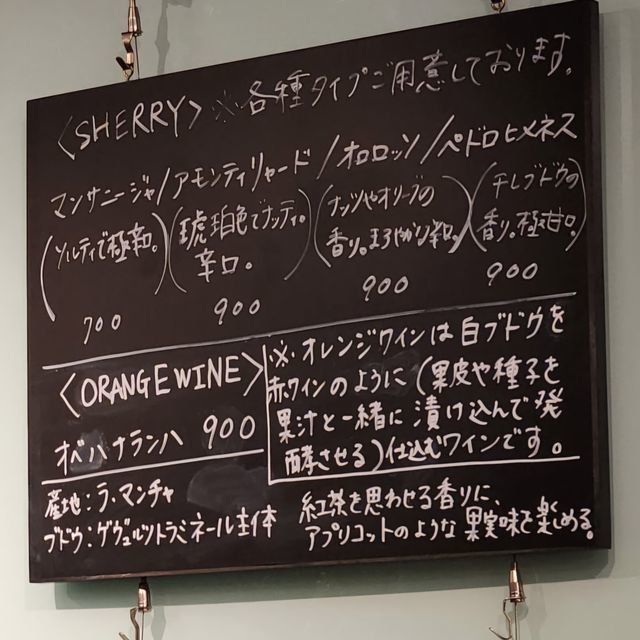 〈SHERRY〉 ※各種タイプご用意しております。
マンサニージャ/アモンティリャード/オロロッソ/ペドロヒメネス
(ソルティで極辛口。) (琥珀色でナッティ。辛口。) (ナッツやオリーブの香り。まろやかな辛口。) (干しブドウの香り。極甘口。)
700 900 900 900
〈ORANGE WINE〉
オベハナランハ 900
※オレンジワインは白ブドウを
赤ワインのように(果皮や種子を
果汁と一緒に漬け込んで発
酵させる)仕込むワインです。
産地:ラ・マンチャ
ブドウ:ゲヴュルツトラミネール主体
紅茶を思わせる香りに、
アプリコットのような果実味を楽しめる。